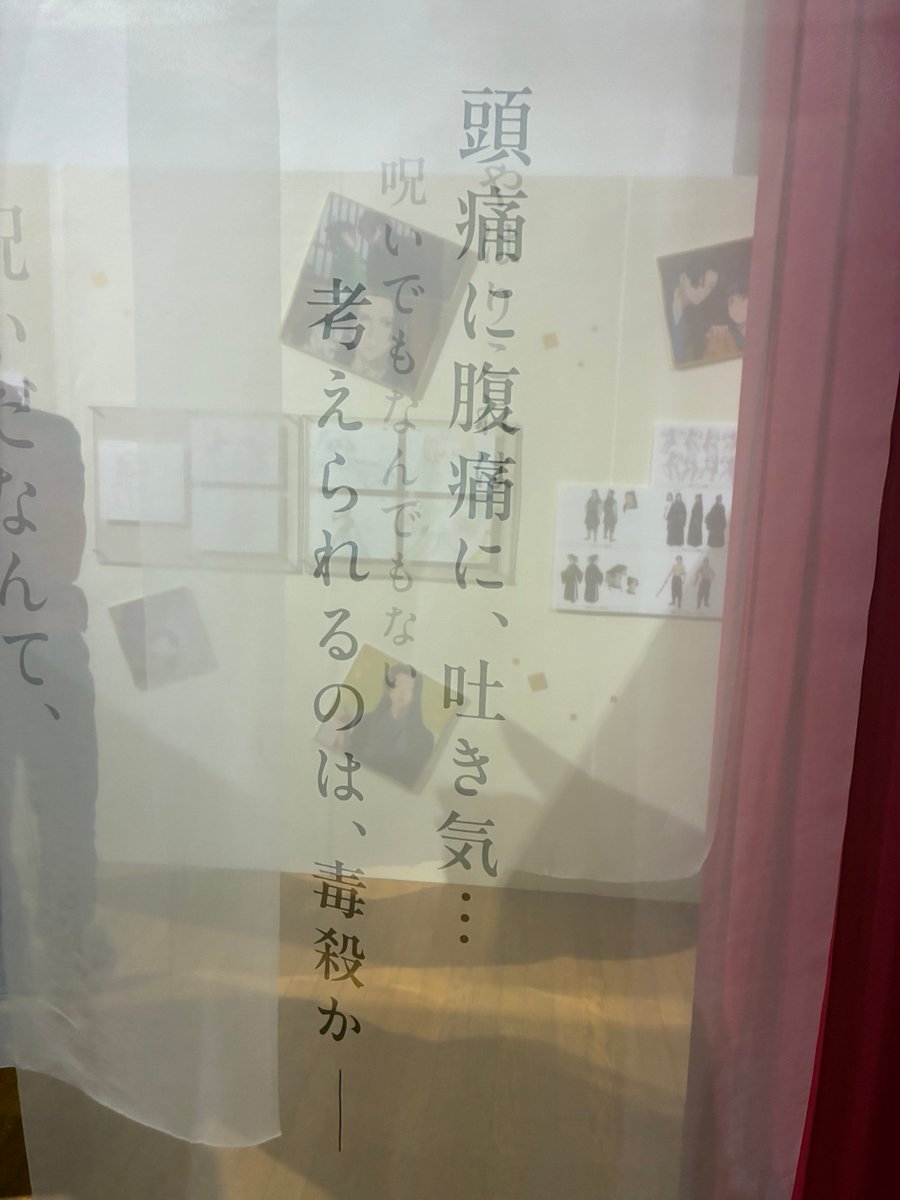 頭痛に腹痛に、吐き気…
考えられるのは、毒殺か――
呪いでもなんでもない
呪いだなんて、